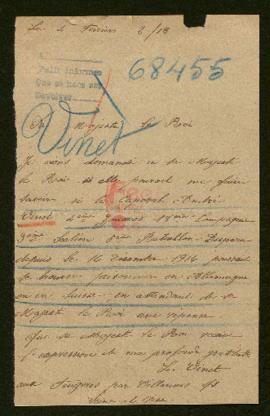 Le 5 Février 2/18
68455
Vinet
Sa Majesté Le Roi
Je vous demande à sa Majesté
le Roi si elle pourait me faire
savoir si le Caporal André
Vinet Zouaves Compagnie
Section Bataillon Disparu
depuis le 16 Décembre 1916 pourait
se trouver prisonnier en Allemagne
ou en Suisse en attendant de sa
Majesté le Roi une réponse
que sa Majesté le Roi reçoive
l'expression de ma profonde gratitude
L. Vinet
aux par
Seine et Oise